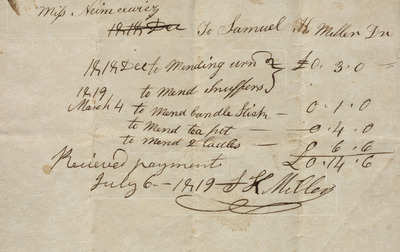 Miss Niemcewicz
1818 Dec To Samuel K Miller Dr
1818 Dec to Mending urn } £0. 3. 0
1819 to Mend Snuffers
March 4 to Mend Candle Stick — 0. 1. 0
to Mend tea pot — 0. 4. 0
to Mend 2 ladles — 0. 6. 6
Recieved payment £0. 14. 6
July 6 — 1819 S K Miller